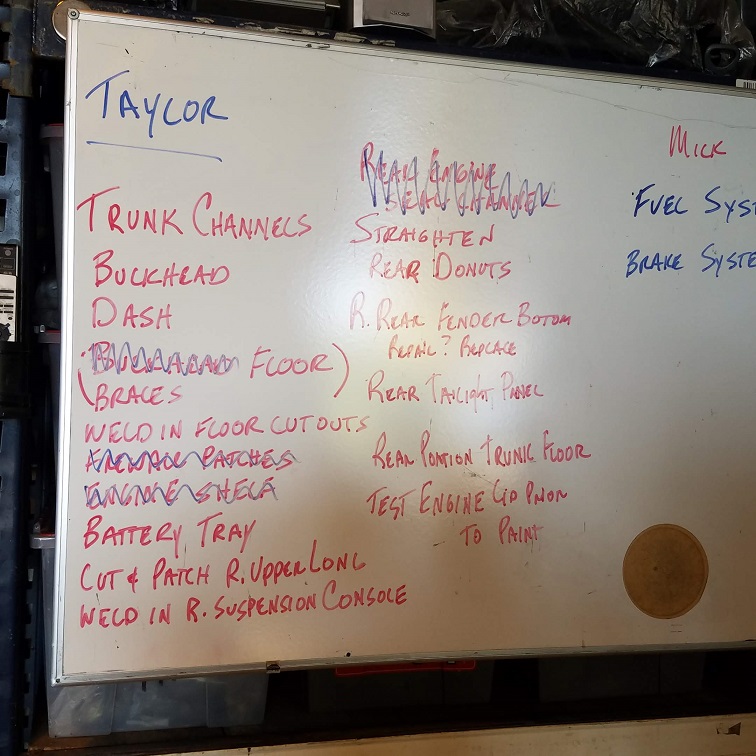 TAYLOR
TRUNK CHANNELS
BUCKHEAD
DASH
BUCKHEAD FLOOR
(BRACES )
WELD IN FLOOR CUTOUTS
FIREWALL PATCHES
ENGINE SHELF
BATTERY TRAY
CUT & PATCH R. UPPER LONG
WELD IN R. SUSPENSION CONSOLE
REAR ENGINE
SEAL CHANNEL
STRAIGHTEN
REAR DONUTS
R. REAR FENDER BOTOM
REPAIR? REPLACE
REAR TAILIGHT PANEL
REAR PORTION TRUNK FLOOR
TEST ENGINE LID PRIOR
TO PAINT
MICK
FUEL SYST
BRAKE SYSTE